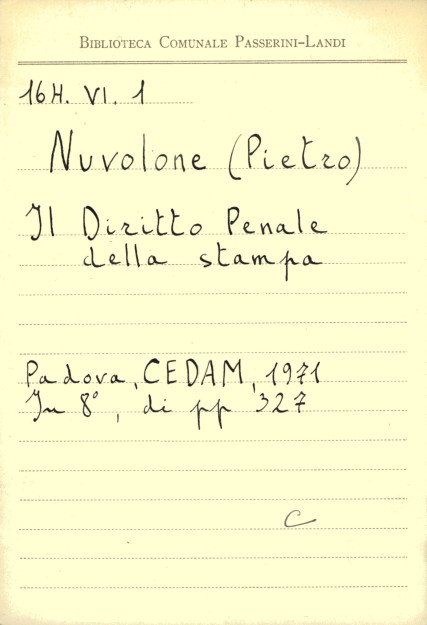 BIBLIOTECA COMUNALE PASSERINI-LANDI
16H. VI. 1
Nuvolone (Pietro)
Il Diritto Penale
della stampa
Padova, CEDAM, 1971
In 8°, di pp 327
C